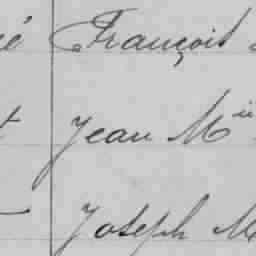 é François
t Jean M.ie
Joseph M